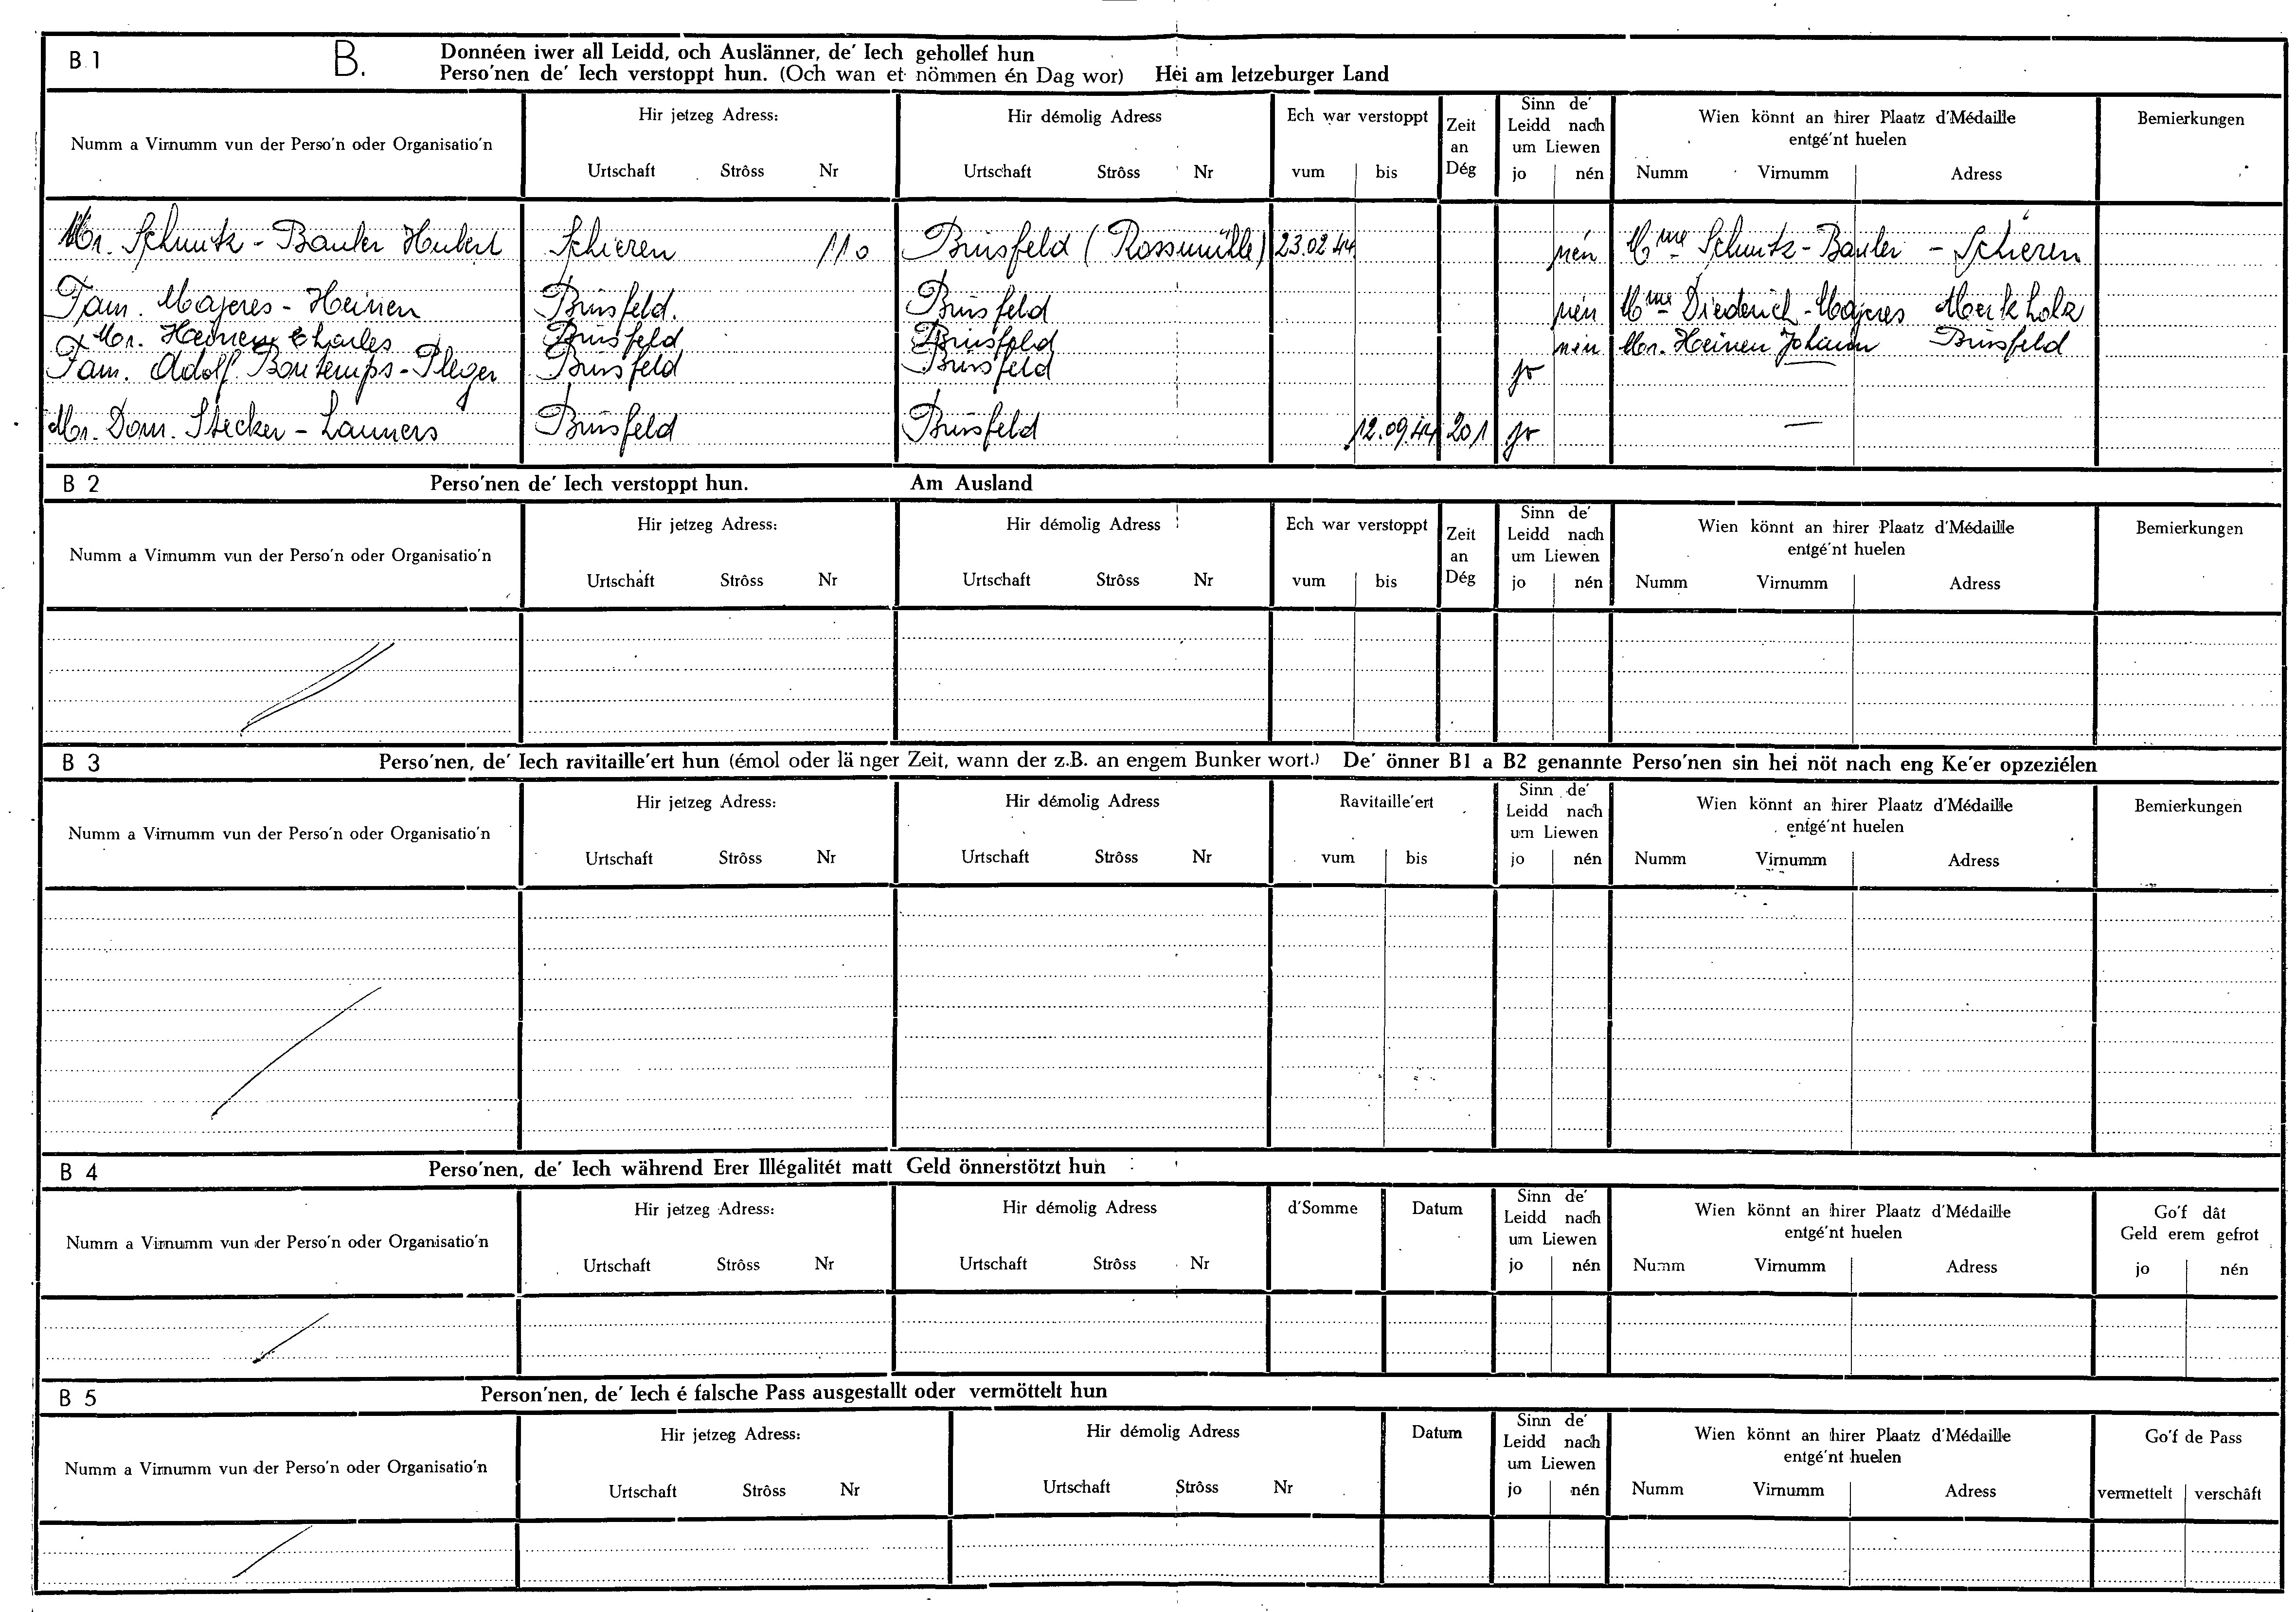 B 1 B. Donnéen iwer all Leidd, och Auslänner, de' Iech gehollef hun
Perso'nen de' Iech verstoppt hun. (Och wan et nömmen én Dag wor) Hei am letzeburger Land
Numm a Virnumm vun der Perso'n oder Organisatio'n
Hir jetzeg Adress:
Urtschaft Strôss Nr
Hir démolig Adress
Urtschaft Strôss Nr
Ech war verstoppt
vum bis
Zeit
an
Dég
Sinn de'
Leidd nach
um Liewen
jo nén
Wien könnt an hirer Plaatz d'Médaille
entgé'nt huelen
Numm Virnumm Adress
Bemierkungen
Mr. Schmitz - Bauler Hubert Schieren 110 Brüsfeld (Rossmühle) 23.02.44 nén Mme Schmitz - Bauler - Schieren
Fam. Majeres - Heinen Brüsfeld. Brüsfeld nén Mme Diederich - Majeres Merkholz
x Mr. Heinen Charles Brüsfeld Brüsfeld nén Mr. Heinen Johann Brüsfeld
Fam. Adolf Bontemps - Pleger Brüsfeld Brüsfeld jo
Mr. Dom. Stecker - Launers Brüsfeld Brüsfeld 12.09.44 201 jo —
B 2 Perso'nen de' Iech verstoppt hun. Am Ausland
Numm a Virnumm vun der Perso'n oder Organisatio'n
Hir jetzeg Adress:
Urtschaft Strôss Nr
Hir démolig Adress
Urtschaft Strôss Nr
Ech war verstoppt
vum bis
Zeit
an
Dég
Sinn de'
Leidd nach
um Liewen
jo nén
Wien könnt an hirer Plaatz d'Médaille
entgé'nt huelen
Numm Virnumm Adress
Bemierkungen
B 3 Perso'nen, de' Iech ravitaille'ert hun (émol oder länger Zeit, wann der z.B. an engem Bunker wort.) De' önner B1 a B2 genannte Perso'nen sin hei nöt nach eng Ke'er opzeziélen
Numm a Virnumm vun der Perso'n oder Organisatio'n
Hir jetzeg Adress:
Urtschaft Strôss Nr
Hir démolig Adress
Urtschaft Strôss Nr
Ravitaille'ert
vum bis
Sinn de'
Leidd nach
um Liewen
jo nén
Wien könnt an hirer Plaatz d'Médaille
entgé'nt huelen
Numm Virnumm Adress
Bemierkungen
B 4 Perso'nen, de' Iech während Erer Illégalitét matt Geld önnerstötzt hun
Numm a Virnumm vun der Perso'n oder Organisatio'n
Hir jetzeg Adress:
Urtschaft Strôss Nr
Hir démolig Adress
Urtschaft Strôss Nr
d'Somme
Datum
Sinn de'
Leidd nach
um Liewen
jo nén
Wien könnt an hirer Plaatz d'Médaille
entgé'nt huelen
Numm Virnumm Adress
Go'f dât
Geld erem gefrot
jo nén
B 5 Person'nen, de' Iech é falsche Pass ausgestallt oder vermöttelt hun
Numm a Virnumm vun der Perso'n oder Organisatio'n
Hir jetzeg Adress:
Urtschaft Strôss Nr
Hir démolig Adress
Urtschaft Strôss Nr
Datum
Sinn de'
Leidd nach
um Liewen
jo nén
Wien könnt an hirer Plaatz d'Médaille
entgé'nt huelen
Numm Virnumm Adress
Go'f de Pass
vermettelt verschâft